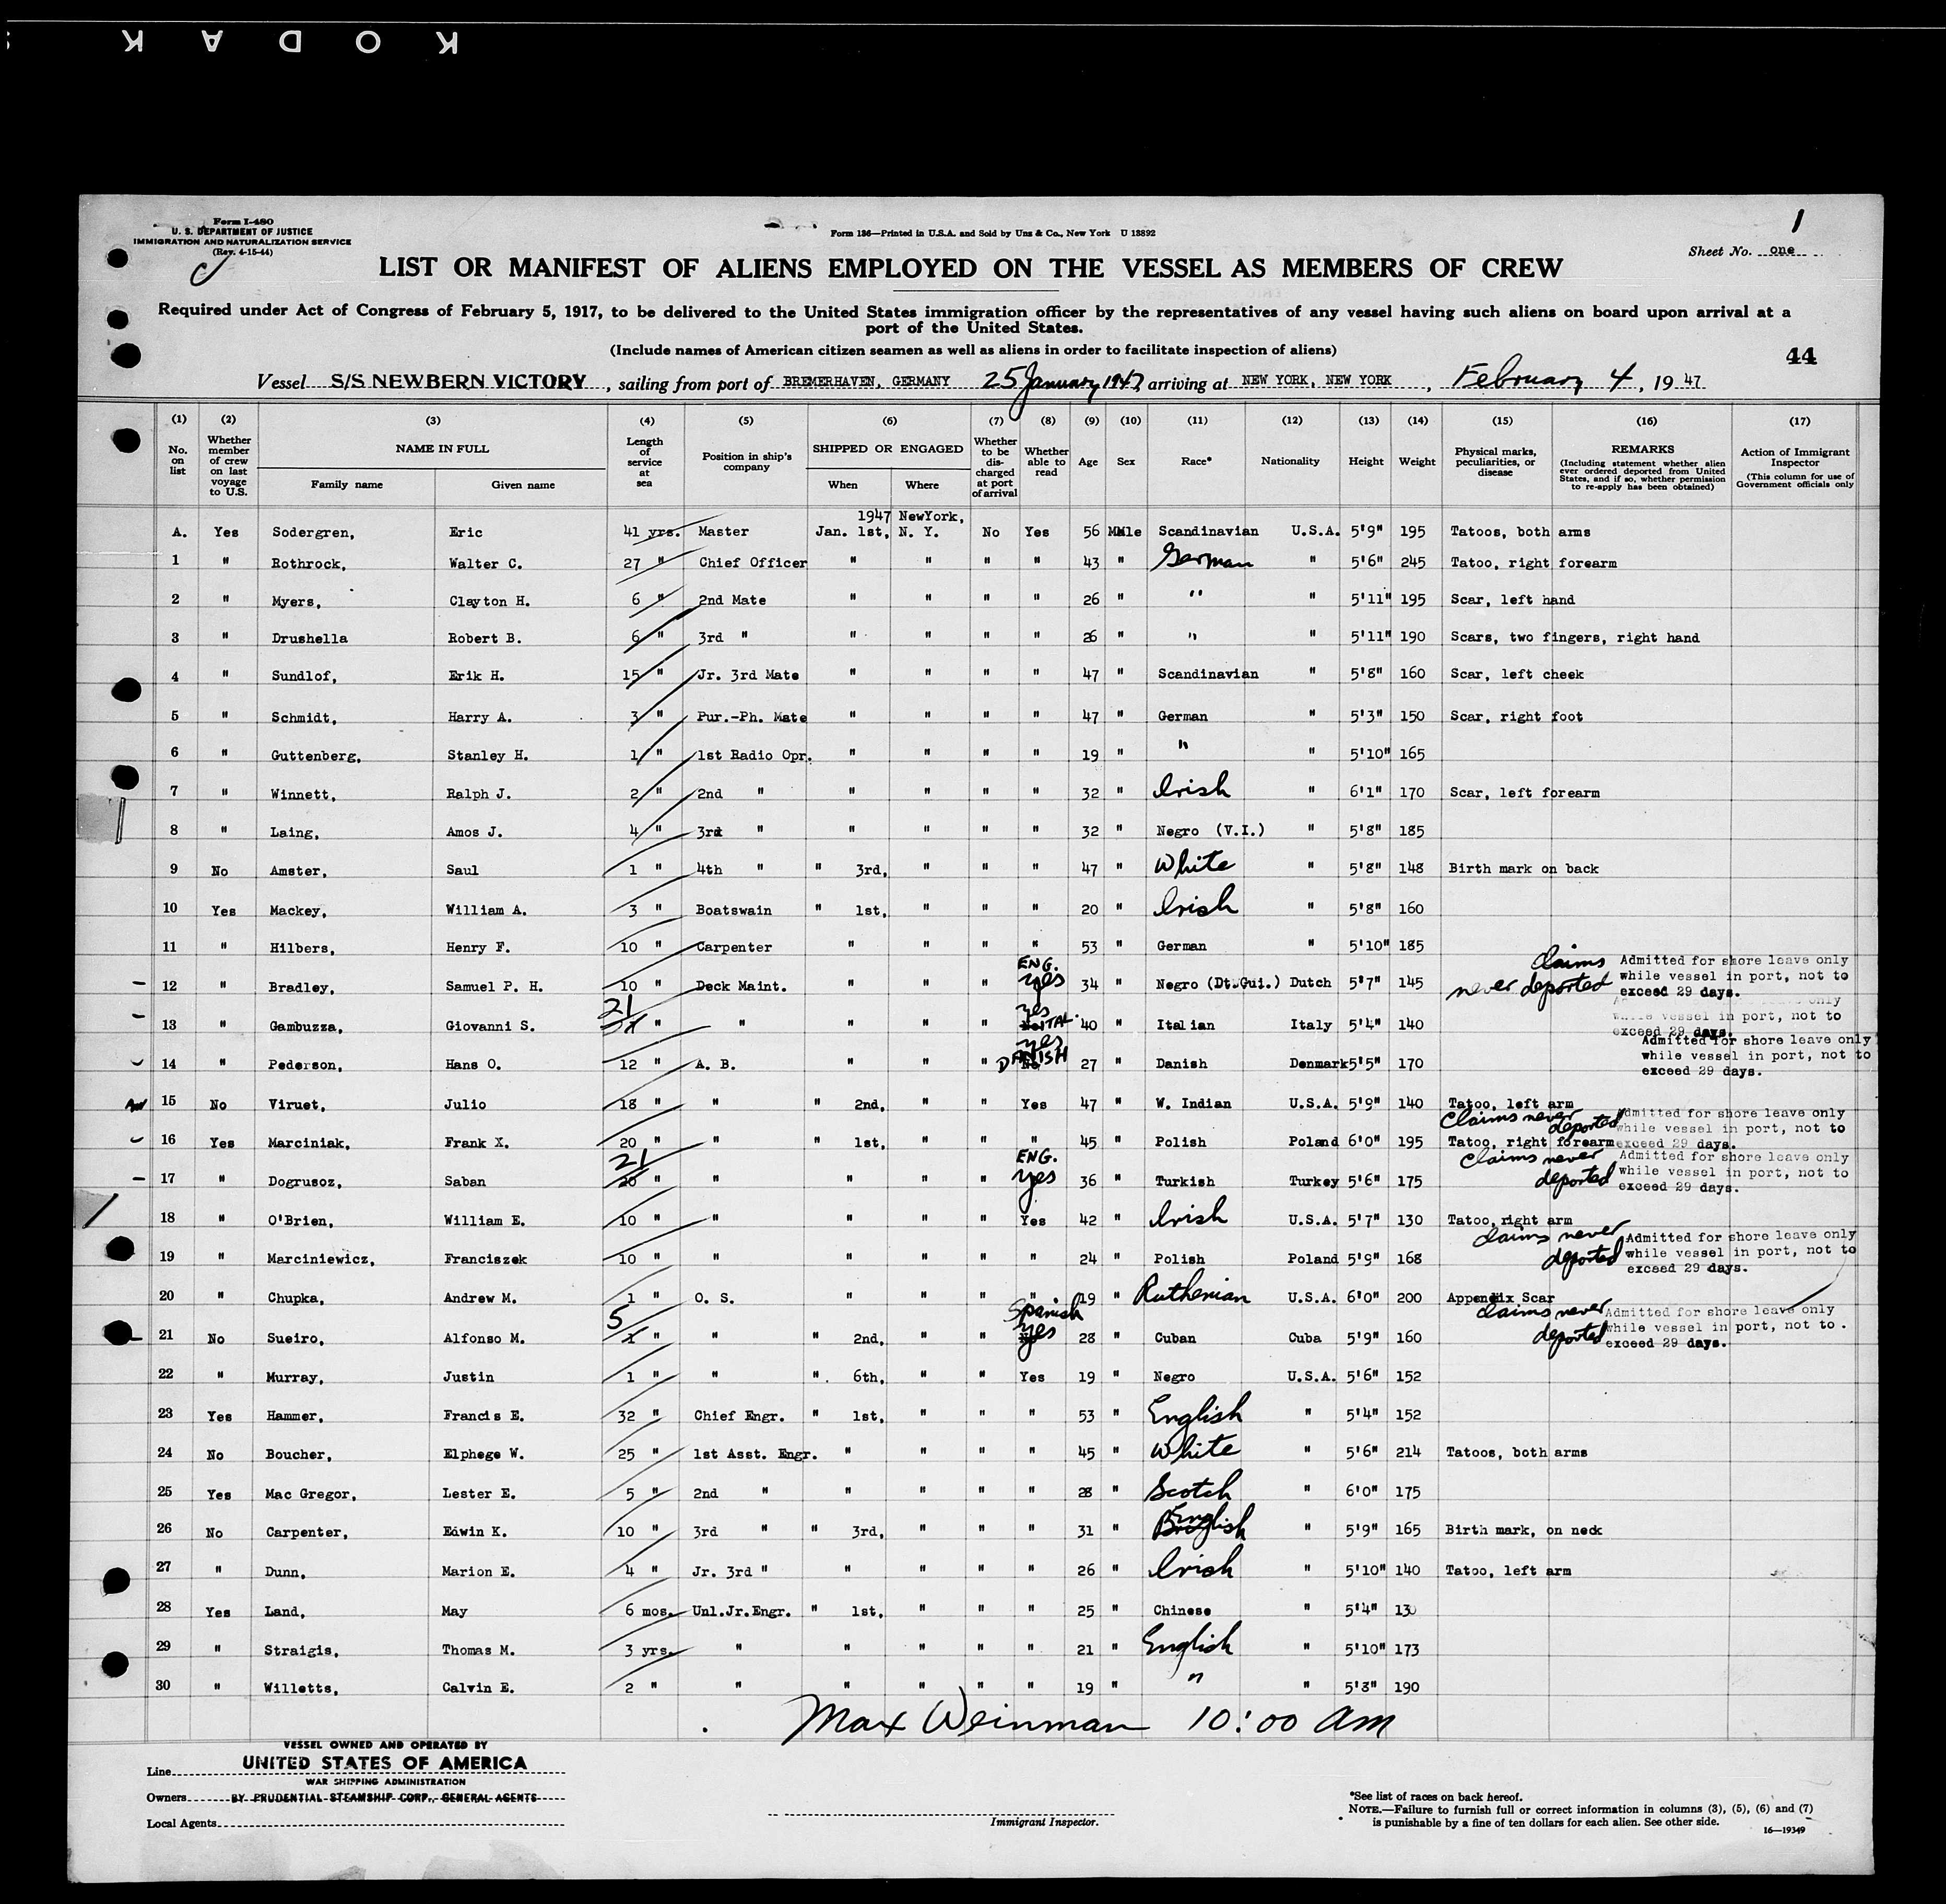 K O D A K S
Form I-480
U. S. DEPARTMENT OF JUSTICE
IMMIGRATION AND NATURALIZATION SERVICE
(Rev. 4-15-44)
Form 136—Printed in U.S.A. and Sold by Unz & Co., New York U 13892
1
Sheet No. one
LIST OR MANIFEST OF ALIENS EMPLOYED ON THE VESSEL AS MEMBERS OF CREW
Required under Act of Congress of February 5, 1917, to be delivered to the United States immigration officer by the representatives of any vessel having such aliens on board upon arrival at a
port of the United States.
(Include names of American citizen seamen as well as aliens in order to facilitate inspection of aliens)
44
Vessel S/S NEWBERN VICTORY, sailing from port of BREMERHAVEN, GERMANY 25 January 1947, arriving at NEW YORK, NEW YORK, February 4, 1947
(1) (2) (3) (4) (5) (6) (7) (8) (9) (10) (11) (12) (13) (14) (15) (16) (17)
No. on list
Whether member of crew on last voyage to U.S.
NAME IN FULL
Family name Given name
Length of service at sea
Position in ship's company
SHIPPED OR ENGAGED
When Where
Whether to be discharged at port of arrival
Whether able to read
Age Sex Race* Nationality Height Weight
Physical marks, peculiarities, or disease
REMARKS
(Including statement whether alien ever ordered deported from United States, and if so, whether permission to re-apply has been obtained)
Action of Immigrant Inspector
(This column for use of Government officials only
1947 NewYork,
A. Yes Sodergren, Eric 41 yrs. Master Jan. 1st, N. Y. No Yes 56 Male Scandinavian U.S.A. 5'9" 195 Tatoos, both arms
1 " Rothrock, Walter C. 27 " Chief Officer " " " " 43 " German " 5'6" 245 Tatoo, right forearm
2 " Myers, Clayton H. 6 " 2nd Mate " " " " 26 " " " 5'11" 195 Scar, left hand
3 " Drushella Robert B. 6 " 3rd " " " " " 26 " " " 5'11" 190 Scars, two fingers, right hand
4 " Sundlof, Erik H. 15 " Jr. 3rd Mate " " " " 47 " Scandinavian " 5'8" 160 Scar, left cheek
5 " Schmidt, Harry A. 3 " Pur.-Ph. Mate " " " " 47 " German " 5'3" 150 Scar, right foot
6 " Guttenberg, Stanley H. 1 " 1st Radio Opr. " " " " 19 " " " 5'10" 165
7 " Winnett, Ralph J. 2 " 2nd " " " " " 32 " Irish " 6'1" 170 Scar, left forearm
8 " Laing, Amos J. 4 " 3rd " " " " " 32 " Negro (V.I.) " 5'8" 185
9 No Amster, Saul 1 " 4th " " 3rd, " " " 47 " White " 5'8" 148 Birth mark on back
10 Yes Mackey, William A. 3 " Boatswain " 1st, " " " 20 " Irish " 5'8" 160
11 " Hilbers, Henry F. 10 " Carpenter " " " " 53 " German " 5'10" 185
12 " Bradley, Samuel P. H. 10 " Deck Maint. " " " ENG. yes 34 " Negro (Dt.Gui.) Dutch 5'7" 145 claims never deported Admitted for shore leave only while vessel in port, not to exceed 29 days.
13 " Gambuzza, Giovanni S. 21 " " " " " yes ITAL. 40 " Italian Italy 5'4" 140 only while vessel in port, not to exceed 29 days.
14 " Pederson, Hans O. 12 " A. B. " " " yes DANISH 27 " Danish Denmark 5'5" 170 Admitted for shore leave only while vessel in port, not to exceed 29 days.
15 No Viruet, Julio 18 " " " 2nd, " " Yes 47 " W. Indian U.S.A. 5'9" 140 Tatoo, left arm
16 Yes Marciniak, Frank X. 20 " " " 1st, " " " 45 " Polish Poland 6'0" 195 Claims never deported Tatoo, right forearm Admitted for shore leave only while vessel in port, not to exceed 29 days.
17 " Dogrusoz, Saban 21 20 " " " " " ENG. yes 36 " Turkish Turkey 5'6" 175 Claims never deported Admitted for shore leave only while vessel in port, not to exceed 29 days.
18 " O'Brien, William E. 10 " " " " " Yes 42 " Irish U.S.A. 5'7" 130 Tatoo, right arm
19 " Marciniewicz, Franciszek 10 " " " " " " 24 " Polish Poland 5'9" 168 claims never deported Admitted for shore leave only while vessel in port, not to exceed 29 days.
20 " Chupka, Andrew M. 1 " O. S. " " " " 19 " Ruthenian U.S.A. 6'0" 200 Appendix Scar
21 No Sueiro, Alfonso M. 5 1 " " " 2nd, " " Spanish yes 28 " Cuban Cuba 5'9" 160 claims never deported Admitted for shore leave only while vessel in port, not to exceed 29 days.
22 " Murray, Justin 1 " " " 6th, " " Yes 19 " Negro U.S.A. 5'6" 152
23 Yes Hammer, Francis E. 32 " Chief Engr. " 1st, " " " 53 " English " 5'4" 152
24 No Boucher, Elphege W. 25 " 1st Asst. Engr. " " " " 45 " White " 5'6" 214 Tatoos, both arms
25 Yes Mac Gregor, Lester E. 5 " 2nd " " " " " 28 " Scotch " 6'0" 175
26 No Carpenter, Edwin K. 10 " 3rd " " 3rd, " " " 31 " English " 5'9" 165 Birth mark, on neck
27 " Dunn, Marion E. 4 " Jr. 3rd " " " " " 26 " Irish " 5'10" 140 Tatoo, left arm
28 Yes Land, May 6 mos. Unl.Jr.Engr. " 1st, " " " 25 " Chinese " 5'4" 130
29 " Straigis, Thomas M. 3 yrs. " " " " " 21 " English " 5'10" 173
30 " Willetts, Calvin E. 2 " " " " " " 19 " " " 5'8" 190
Max Weinman 10:00 am
VESSEL OWNED AND OPERATED BY
Line UNITED STATES OF AMERICA
WAR SHIPPING ADMINISTRATION
Owners BY PRUDENTIAL STEAMSHIP CORP., GENERAL AGENTS
Local Agents
Immigrant Inspector.
*See list of races on back hereof.
NOTE.—Failure to furnish full or correct information in columns (3), (5), (6) and (7)
is punishable by a fine of ten dollars for each alien. See other side.
16—19349